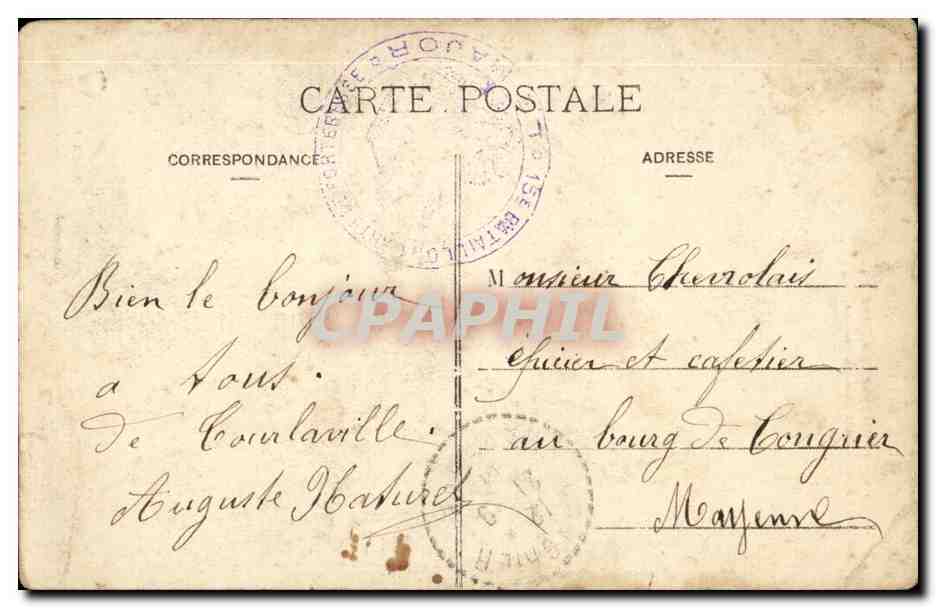 CARTE POSTALE
CORRESPONDANCE
ADRESSE
MAJOR
15E BATAILLON
FORTERESSE
Bien le bonjour
a tous.
de Tourlaville.
Auguste
Monsieur Chevrolais
épicier et cafetier
au bourg de Congrier
Mayenne
CPAPHIL